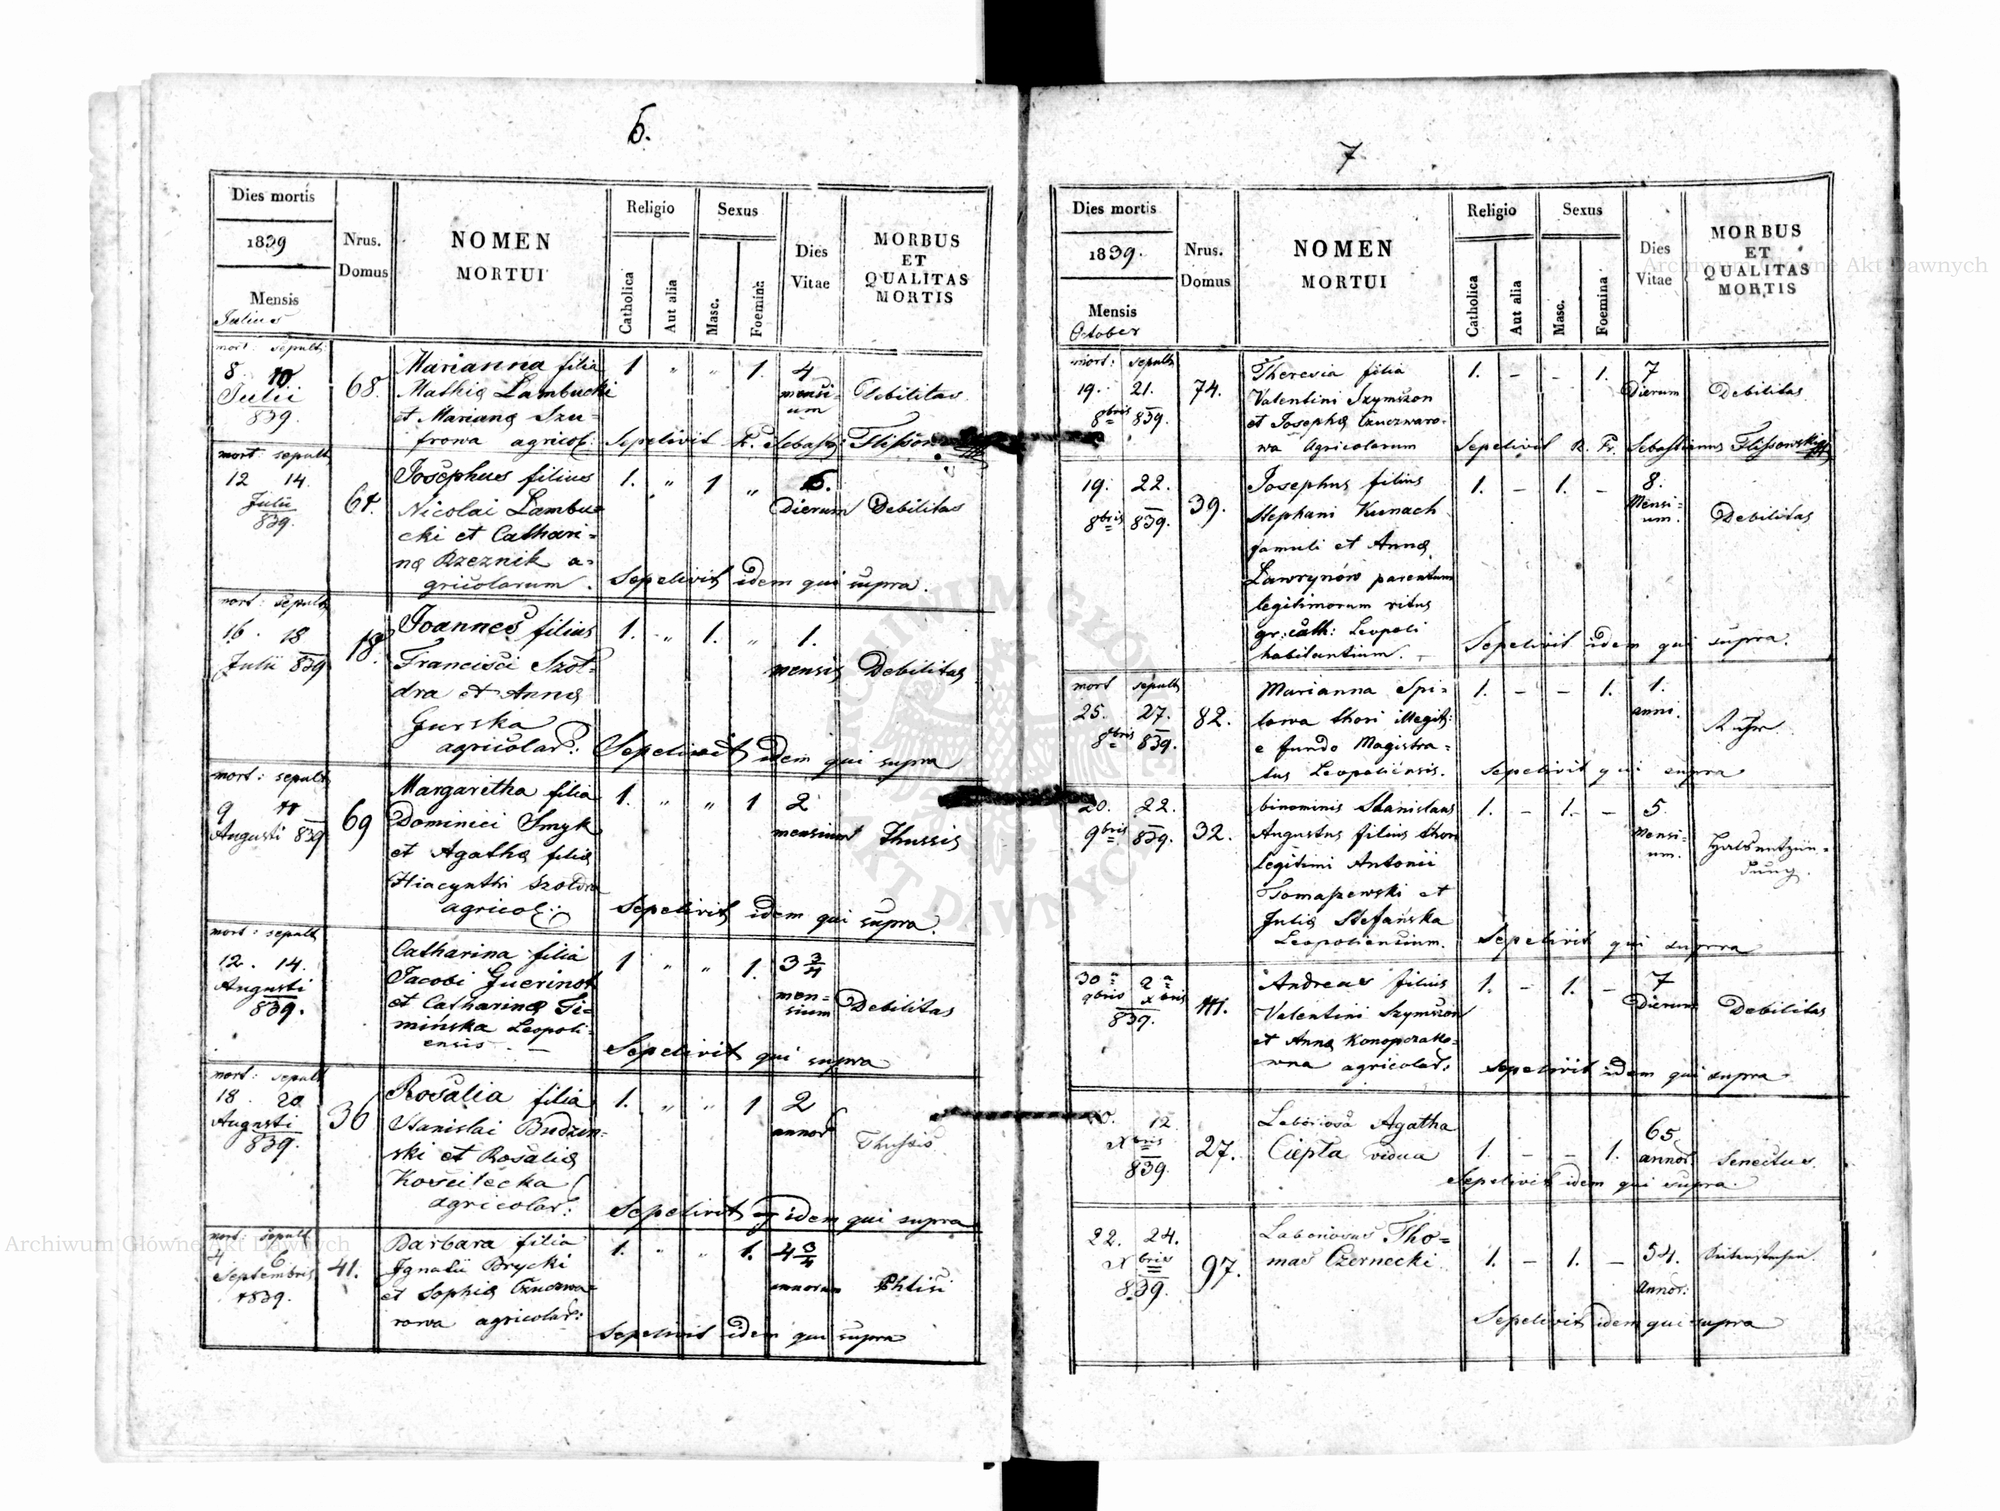 6.
Dies mortis
1839
Mensis
Julius
Nrus.
Domus
NOMEN
MORTUI
Religio
Catholica
Aut alia
Sexus
Masc.
Foemina
Dies
Vitae
MORBUS
ET
QUALITAS
MORTIS
mort: sepult:
8 10
Julii
839.
68.
Marianna filia
Mathiæ Lambucki
et Marianæ Szu-
frowa agricol:
1 " " 1.
4
mensi-
um
Debilitas.
Sepelivit R. Sebast:
mort: sepult
12 14.
Julii
839.
Josephus filius
Nicolai Lambu-
cki et Cathari-
næ Rzeznik a-
gricolarum.
1. " 1 "
6.
Dierum
Debilitas
Sepelivit idem qui supra.
mort: sepult
16. 18
Julii 839
18.
Joannes filius
Francisci Szoł-
dra et Annæ
Gurska
agricolar:
1. " 1. "
1.
mensis
Debilitas
Sepelivit idem qui supra
mort: sepult
9 11
Augusti 839
69
Margaretha filia
Dominici Smyk
et Agathæ filiæ
Hiacynthi Szoldra
agricol:
1. " " 1
2
mensium
Thussis
Sepelivit idem qui supra.
mort: sepult
12. 14.
Augusti
839.
Catharina filia
Jacobi Guerinot
et Catharinæ Zi-
mińska Leopoli-
ensis. —
1 " " 1.
3 3/4
men-
sium
Debilitas
Sepelivit qui supra
mort: sepult
18. 20
Augusti
839.
36
Rosalia filia
Stanislai Budzin-
ski et Rosaliæ
Kościtecka
agricolar:
1. " " 1
2
annor
Thussis
Sepelivit idem qui supra
mort: sepult
4
Septembris
1839.
41.
Barbara filia
Ignatii Brycki
et Sophiæ Cznczwa-
rowa agricolar:
1. " " 1.
4 3/4
annorum
Phtisi
Sepelivit idem qui supra
7
Dies mortis
1839.
Mensis
October
Nrus.
Domus
NOMEN
MORTUI
Religio
Catholica
Aut alia
Sexus
Masc.
Foemina
Dies
Vitae
MORBUS
ET
QUALITAS
MORTIS
mort: sepult
19. 21.
8bris 839.
74.
Theresia filia
Valentini Szymszon
et Josephæ Cznczwaro-
wa Agricolarum
1. - - 1.
7
Dierum
Debilitas
Sepelivit R. Fr. Sebastianus Flissowski
19. 22.
8bris 839.
39.
Josephus filius
Stephani Kunach
famuli et Annæ
Lawrynów parentum
legitimorum ritus
gr: cath: Leopoli
habitantium. —
1. - 1. -
8.
Mensi-
um.
Debilitas
Sepelivit idem qui supra.
mort sepult
25. 27.
8bris 839.
82.
Marianna Spi-
towa thori illegit:
e fundo Magistra-
tus Leopoliensis.
1. - - 1.
1.
anni.
Ruhr
Sepelivit qui supra
20. 22.
9bris 839.
32.
binominis Stanislaus
Augustus filius thori
legitimi Antonii
Tomaszewski et
Juliæ Stefańska
Leopoliensium.
1. - 1. -
5.
Mensi-
um.
Halsentzün-
dung.
Sepelivit qui suprra
30a 2a
9bris Xbris
839.
111.
Andreas filius
Valentini Szymszon
et Annæ Konopczako-
wna agricolar:
1. - 1. -
7
Dierum
Debilitas
Sepelivit idem qui supra
12.
Xbris
839.
27.
Laboriosa Agatha
Ciepła vidua
1. - - 1.
65
annor.
Senectus.
Sepelivit idem qui supra.
22. 24.
Xbris
839.
97.
Laboriosus Tho-
mas Czernecki
1. - 1. -
54.
Annor:
Seitenstechen.
Sepelivit idem qui supra
ARCHIWUM GŁÓWNE AKT DAWNYCH
Archiwum Główne Akt Dawnych
Archiwum Główne Akt Dawnych